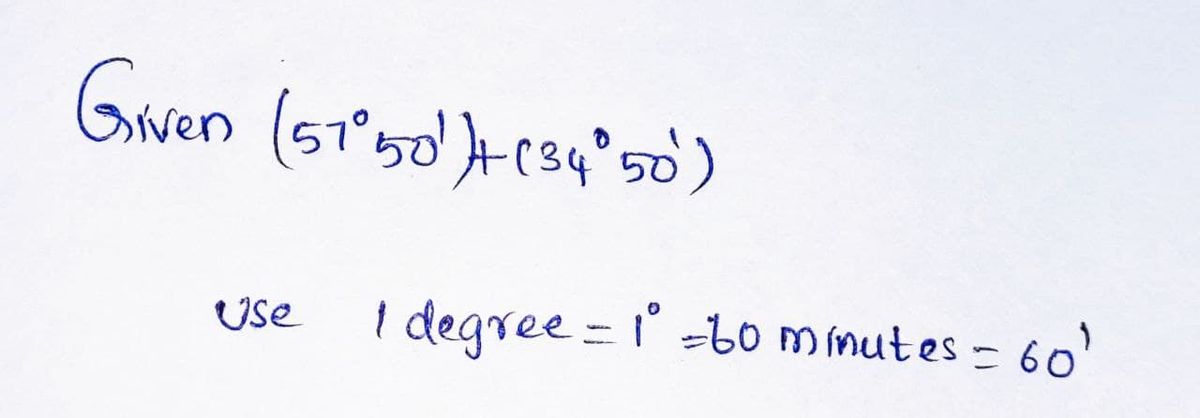 Given (57°50')+(34°50')
Use 1 degree = 1° =60 minutes = 60'